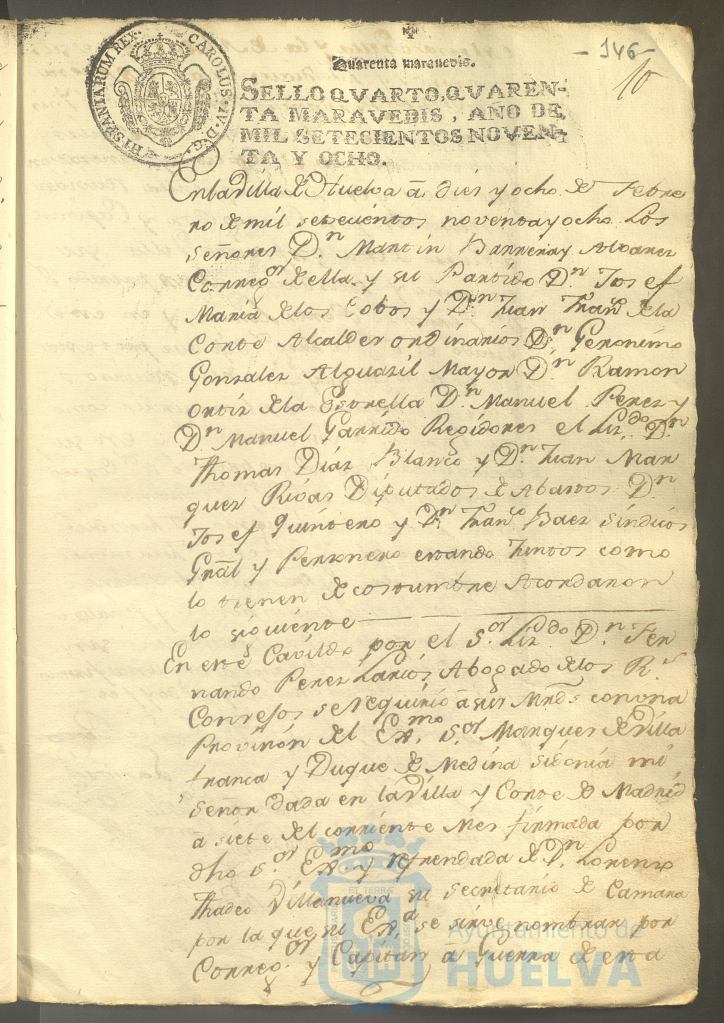 HISPANIARUM REX. CAROLUS·IV·D·G·
- 146 -
10
Quarenta maravedis.
SELLO QVARTO, QVAREN-
TA MARAVEDIS, AÑO DE
MIL SETECIENTOS NOVEN-
TA Y OCHO.
En la Villa de Huelva â dies y ocho de Febre
ro de mil setecientos noventa y ocho. Los
señores Dn. Martin Barrera y Alvarez
Correg.or de ella y su Partido Dn. Josef
Maria de los Cobos y Dn. Juan Fran.co de la
Corte Alcaldes ordinarios Dn. Geronimo
Gonzalez Alguasil Mayor Dn. Ramon
ortiz de la Estrella Dn. Manuel Perez y
Dn. Manuel Garrido Regidores el Liz.do Dn.
Thomas Diaz Blanco y Dn. Juan Mar
quez Rivas Diputados de Abastos Dn.
Josef Quintero y Dn. Fran.co Baez Sindicos
Gnal y Personero estando Juntos como
lo tienen de costumbre Acordaron
lo siguiente
En este Cavildo por el S.or Liz.do Dn. Fer
nando Perez Larios Abogado de los R.s
Consejos se requirió â sus Mrds con una
Provision del Ex.mo S.or Marques de Villa
franca y Duque de Medina sidonia mi
señor dada en la Villa y Corte de Madrid
a siete del corriente Mes firmada por
dho S.or Ex.mo y refrendada de Dn. Lorenzo
Thadeo Villanueva su secretario de Camara
por la que su Ex.a se sirve nombrar por
Correg.or y Capitan a Guerra de en a
Ayuntamiento de
HUELVA